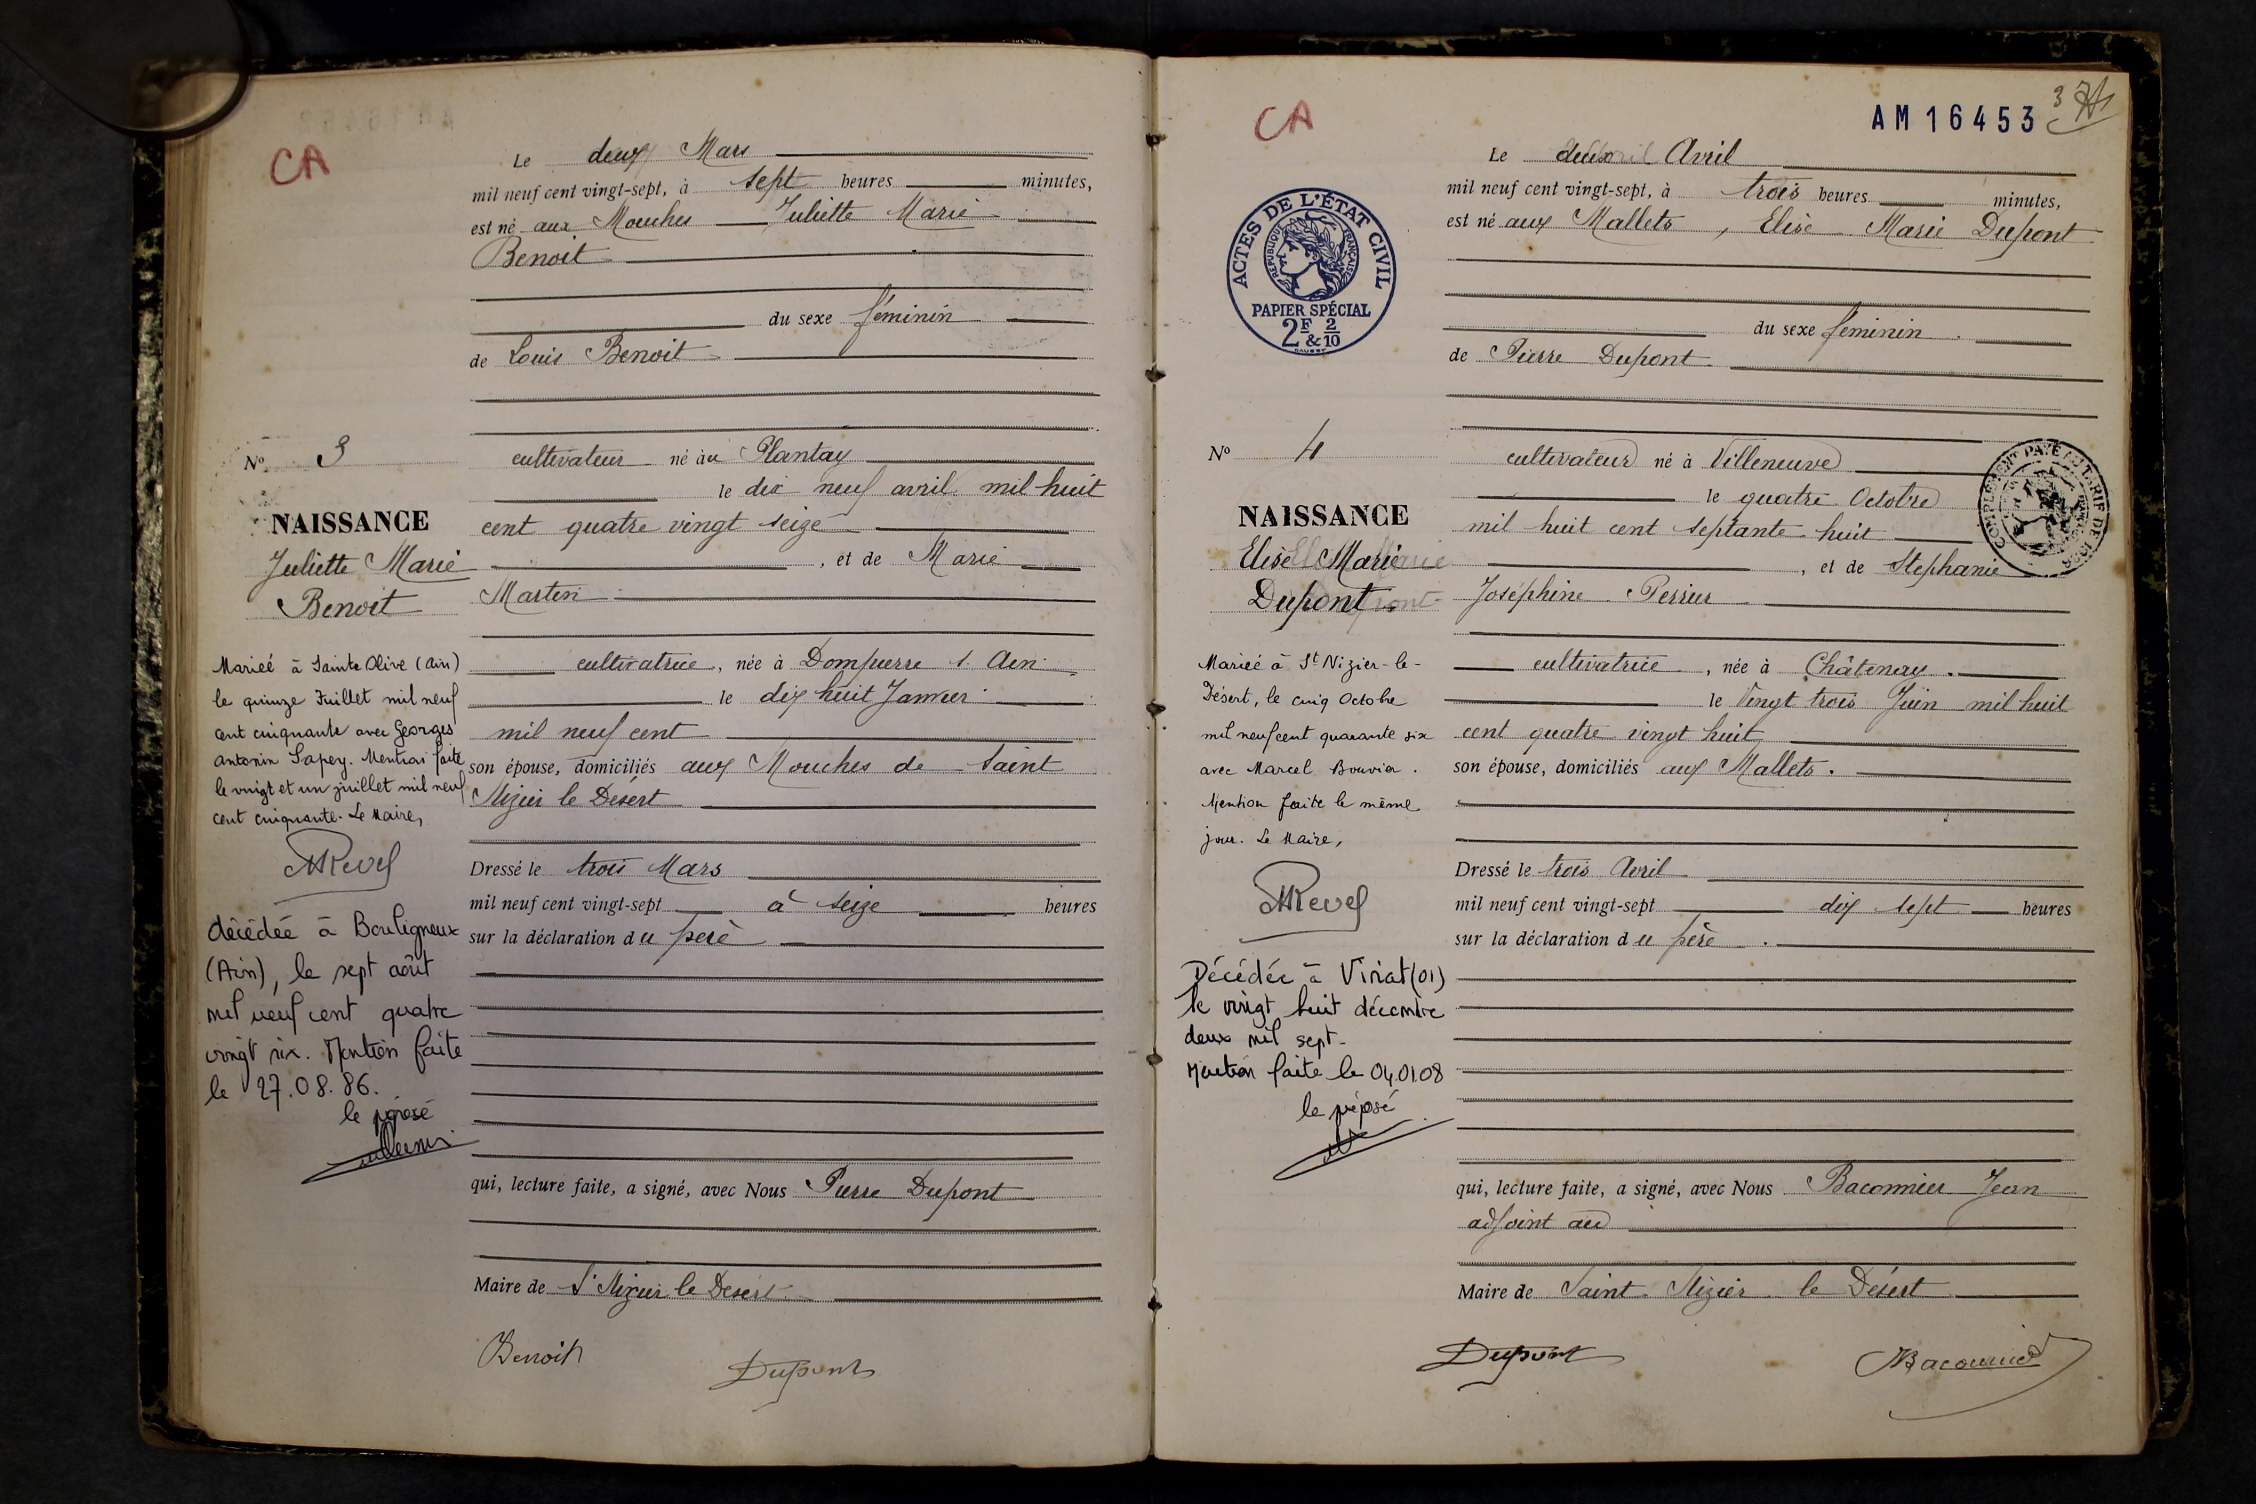 CA
Le deux Mars
mil neuf cent vingt-sept, à sept heures minutes,
est né aux Mouches Juliette Marie
Benoit
du sexe féminin
de Louis Benoit
No 3
cultivateur né au Plantay
le dix neuf avril mil huit
NAISSANCE
cent quatre vingt seize
Juliette Marie
, et de Marie
Benoit
Martin
Mariée à Sainte Olive (Ain)
le quinze Juillet mil neuf
cent cinquante avec Georges
antonin Sapey. Mention faite
le vingt et un juillet mil neuf
cent cinquante. Le Maire,
MRevel
cultivatrice, née à Dompierre s. Ain
le dix huit Janvier
mil neuf cent
son épouse, domiciliés aux Mouches de Saint
Nizier le Désert
Dressé le trois Mars
mil neuf cent vingt-sept à seize heures
sur la déclaration du père
décédée à Bouligneux
(Ain), le sept août
mil neuf cent quatre
vingt six. Mention faite
le 27.08.86.
le préposé
qui, lecture faite, a signé, avec Nous Pierre Dupont
Maire de St Nizier le Désert
Benoit
Dupont
CA
AM16453
Le deux Avril
mil neuf cent vingt-sept, à trois heures minutes,
est né aux Mallets, Elise Marie Dupont
ACTES DE L'ÉTAT CIVIL
RÉPUBLIQUE FRANÇAISE
PAPIER SPÉCIAL
2F & 2/10
du sexe féminin
de Pierre Dupont
No 4
cultivateur né à Villeneuve
le quatre Octobre
NAISSANCE
mil huit cent septante huit
COMPLÉMENT PAYÉ AU TARIF DE
Elise Marie
, et de Stephanie
Dupont
Joséphine Perrier
Mariée à St Nizier-le-
Désert, le cinq Octobre
mil neuf cent quarante six
avec Marcel Bouvier.
Mention faite le même
jour. Le Maire,
MRevel
cultivatrice, née à Châtenay.
le Vingt trois Juin mil huit
cent quatre vingt huit
son épouse, domiciliés aux Mallets.
Dressé le trois Avril
mil neuf cent vingt-sept dix sept heures
sur la déclaration du père
Décédée à Viriat (01)
le vingt huit décembre
deux mil sept.
Mention faite le 04.01.08
le préposé
qui, lecture faite, a signé, avec Nous Baconnier Jean
adjoint au
Maire de Saint Nizier le Désert
Dupont
Baconnier